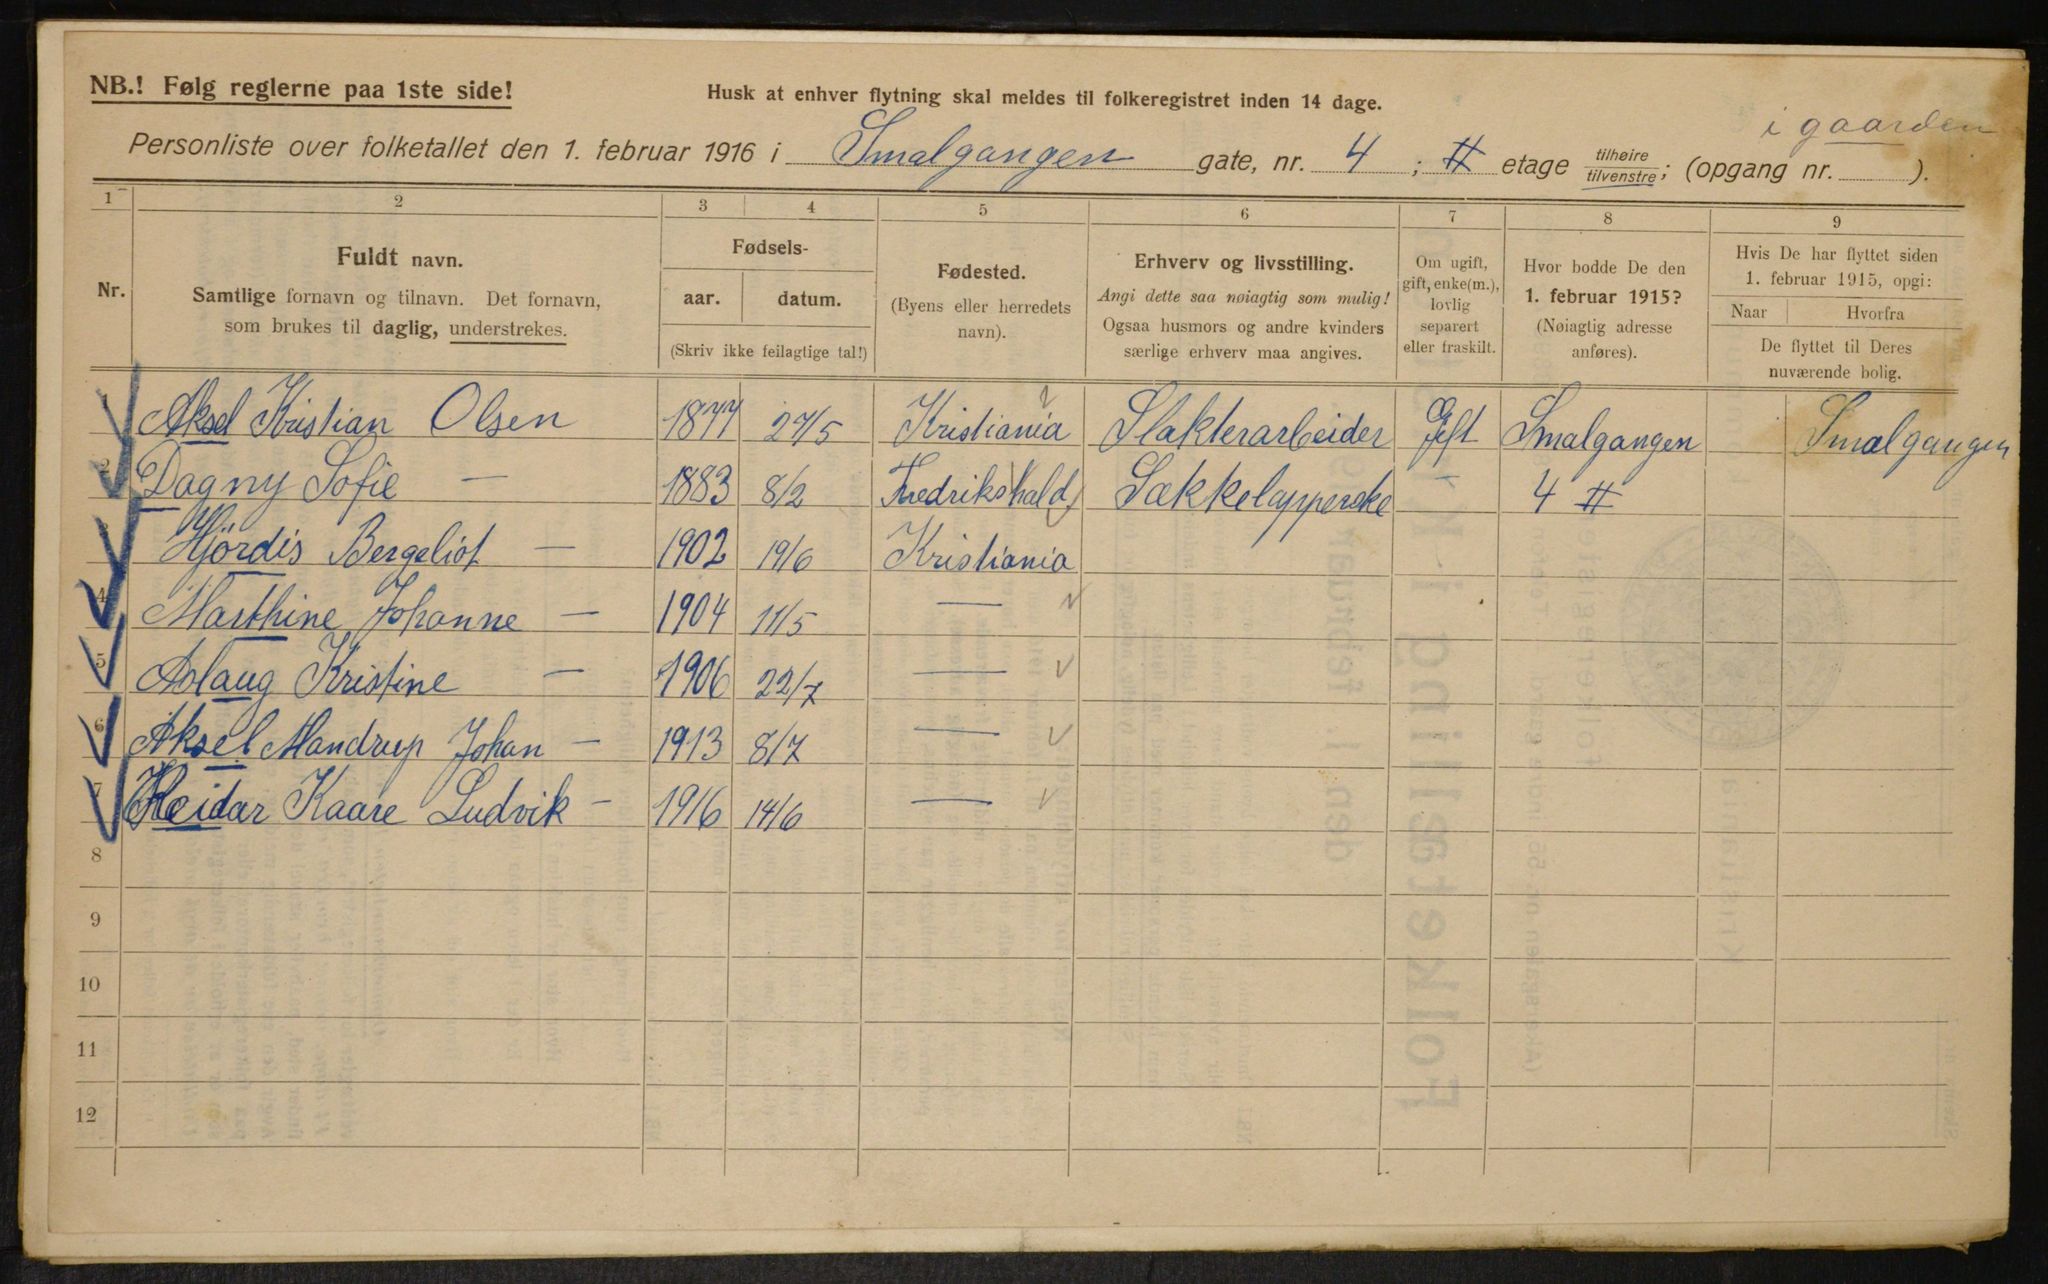 NB.! Følg reglerne paa 1ste side!
Husk at enhver flytning skal meldes til folkeregistret inden 14 dage.
i gaarden
Personliste over folketallet den 1. februar 1916 i Smalgangen gate, nr. 4 ; II etage tilhøire tilvenstre ; (opgang nr. ).
1 2 3 4 5 6 7 8 9
Nr.
Fuldt navn.
Samtlige fornavn og tilnavn. Det fornavn,
som brukes til daglig, understrekes.
Fødsels-
aar. datum.
(Skriv ikke feilagtige tal!)
Fødested.
(Byens eller herredets
navn).
Erhverv og livsstilling.
Angi dette saa nøiagtig som mulig!
Ogsaa husmors og andre kvinders
særlige erhverv maa angives.
Om ugift,
gift, enke(m.),
lovlig
separert
eller fraskilt.
Hvor bodde De den
1. februar 1915?
(Nøiagtig adresse
anføres).
Hvis De har flyttet siden
1. februar 1915, opgi:
Naar Hvorfra
De flyttet til Deres
nuværende bolig.
1 Aksel Kristian Olsen 1877 27/5 Kristiania Slakterarbeider Gift Smalgangen Smalgangen
2 Dagny Sofie — 1883 8/2 Fredrikshald Sækkelapperske - 4 II
3 Hjördis Bergeliot — 1902 19/6 Kristiania
4 Marthine Johanne — 1904 11/5 —
5 Aslaug Kristine — 1906 22/7 —
6 Aksel Mandrup Johan — 1913 8/7 —
7 Reidar Kaare Ludvik — 1916 14/6 —
8
9
10
11
12